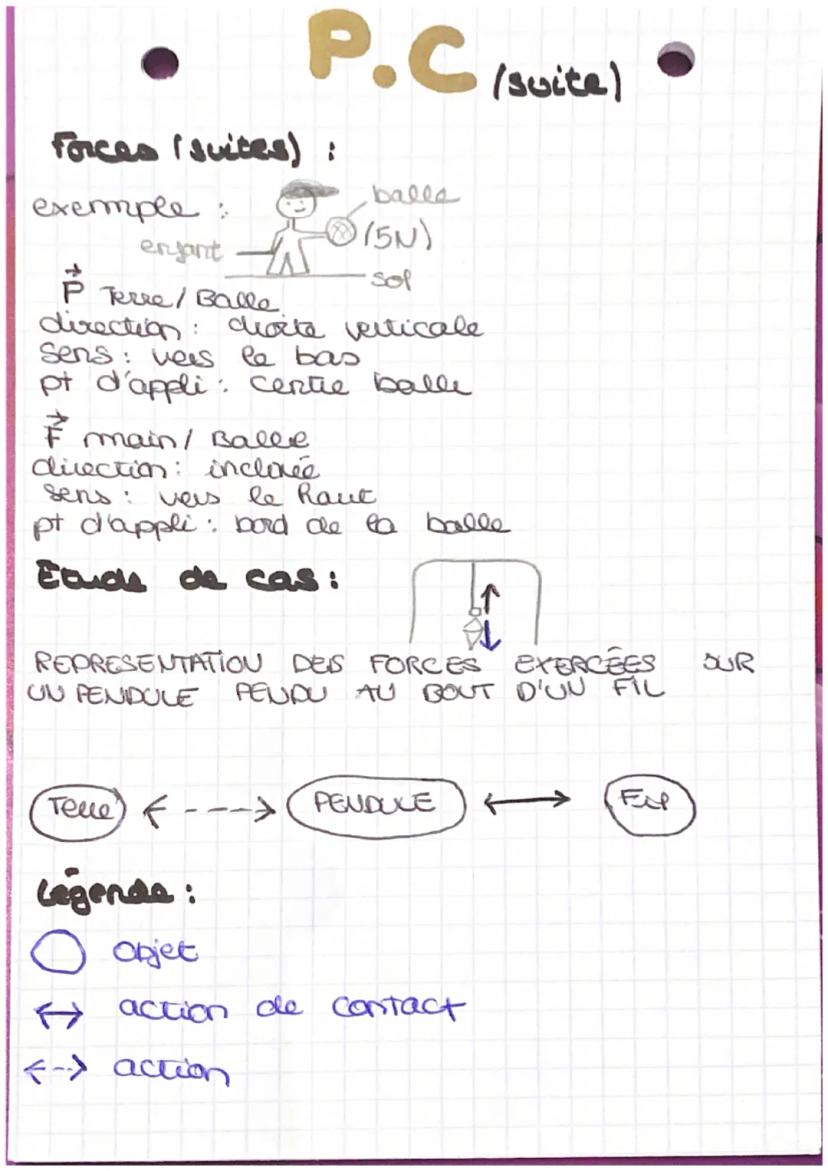 P.C (suite)
Forces (suites) :
exemple :
balle
(5N)
enfant
sol
P Terre/Balle
direction : droite verticale
sens : vers le bas
pt d'appli : centre balle
F main/Balle
direction : inclinée
sens : vers le haut
pt d'appli : bord de la balle
Etude de cas :
REPRESENTATION DES FORCES EXERCÉES SUR
UN PENDULE PENDU AU BOUT D'UN FIL
Terre PENDULE Fil
Légende :
objet
action de contact
action